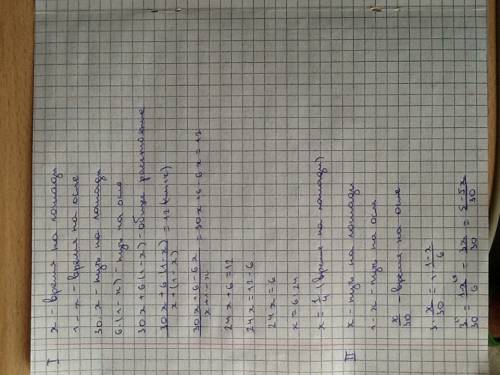 I x - время на лошади
1 - x - время на осле
30x - путь на лошади
6(1-x) - путь на осле
30x + 6(1-x) - общее расстояние
30x + 6(1-x) / x + (1-x) = 12 (км/ч)
30x + 6 - 6x / x + 1 - x = 30x + 6 - 6x = 12
24x + 6 = 12
24x = 12 - 6
24x = 6
x = 6 : 24
x = 1/4 (время на лошади)
II x - путь на лошади
1 - x - путь на осле
x/30 - время на осле
3 · x/30 = 1 · 1-x/6